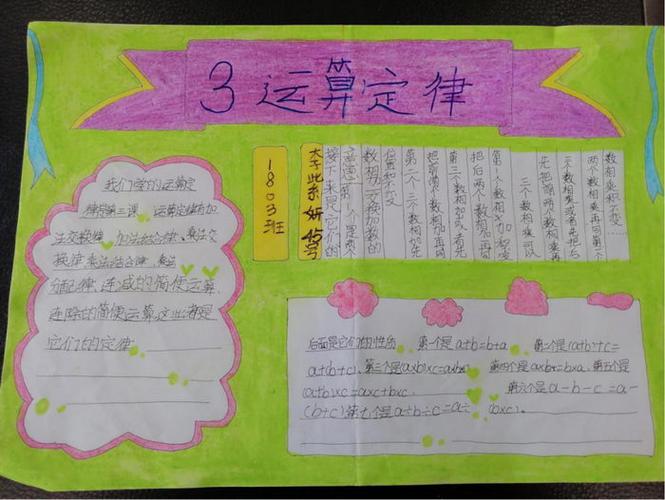 3运算定律
我们学的运算定
律是第三课 运算定律有加
法交换律、加法结合律、乘法交
换律、乘法结合律、乘法
分配律、连减的简便运算
连除的简便运算.这些都是
它们的定律
1803班
接下来是它们的
意思:第一个是两个
数相加交换加数的
位置和不变
第二个三个数相加先
把前两个数相加再同
第三个数相加或者先
把后两个数相加再同
第一个数相加
三个数相乘可以
先把前两个数相乘再
两个数相乘再同第一个
数相乘积不变……
后面是它们的性质 第一个是a+b=b+a、 第二个是(a+b)+c=
a+(b+c)、第三个是(a×b)×c=a×b×c 第四个是a×b=b×a、第五个是
(a+b)×c=a×c+b×c 第六个是a-b-c=a-
(b+c)第七个是a÷b÷c=a÷ (b×c)。